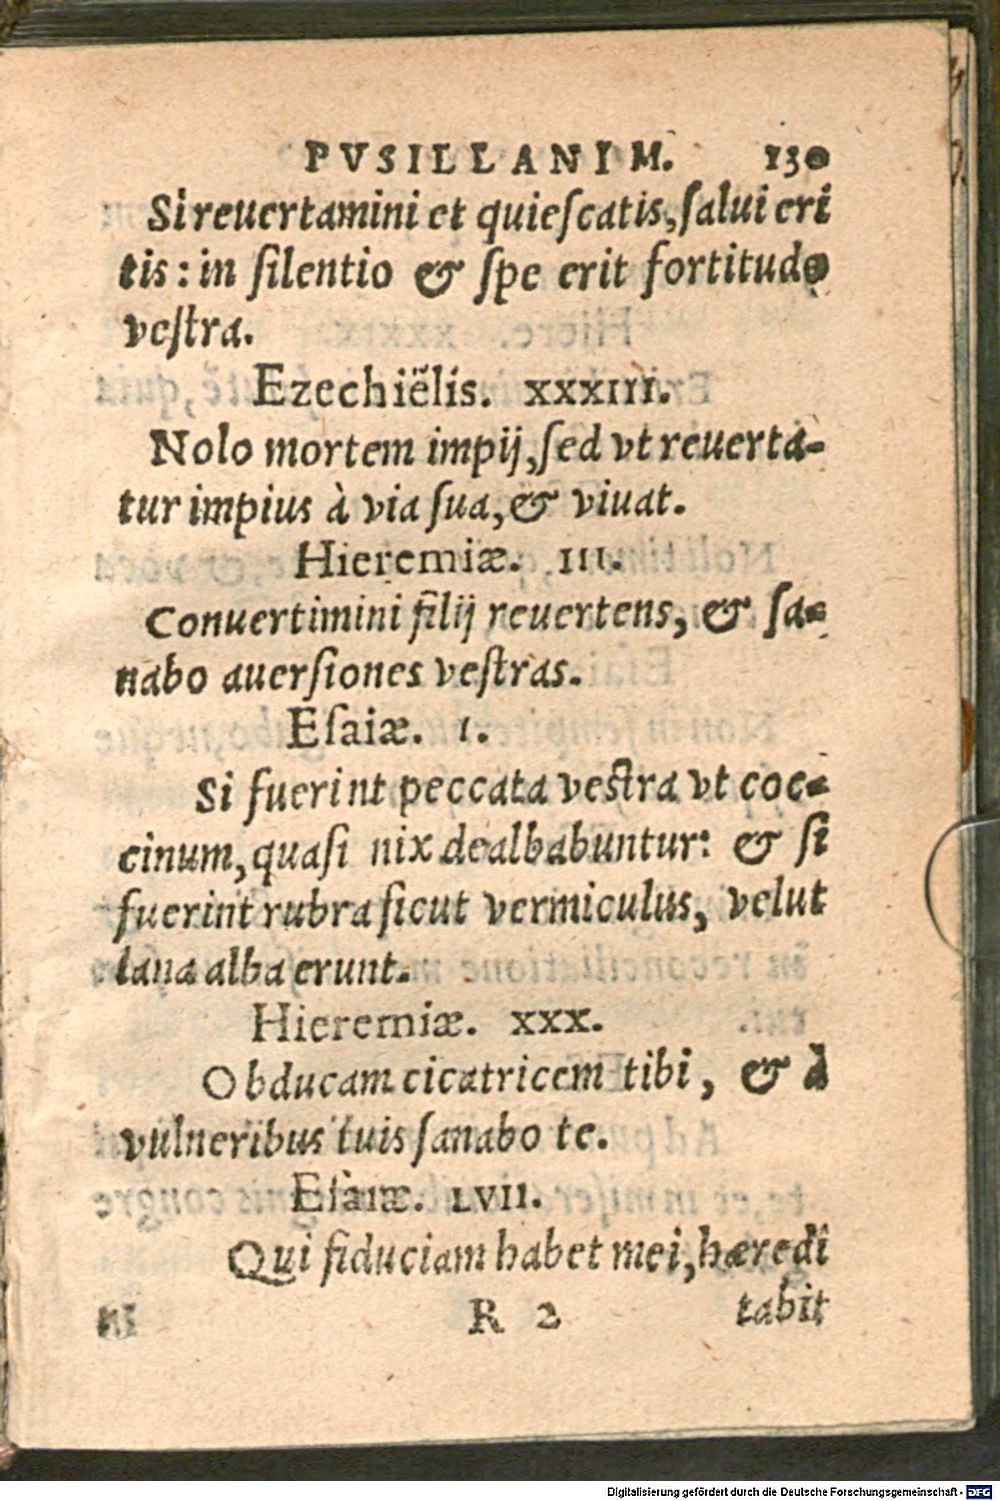 PVSILLANIM. 130
Si reuertamini et quieſcatis, ſalui eri
tis: in ſilentio & ſpe erit fortitudo
veſtra.
Ezechiëlis. XXXIII.
Nolo mortem impij, ſed vt reuerta-
tur impius à via ſua, & viuat.
Hieremiæ. III.
Conuertimini filij reuertens, & ſa-
nabo auerſiones veſtras.
Eſaiæ. I.
Si fuerint peccata veſtra vt coc-
cinum, quaſi nix dealbabuntur: & ſi
fuerint rubra ſicut vermiculus, velut
lana alba erunt.
Hieremiæ. XXX.
Obducam cicatricem tibi, & à
vulneribus tuis ſanabo te.
Eſaiæ. LVII.
Qui fiduciam habet mei, hæredi
R 2 tabit
Digitalisierung gefördert durch die Deutsche Forschungsgemeinschaft - DFG